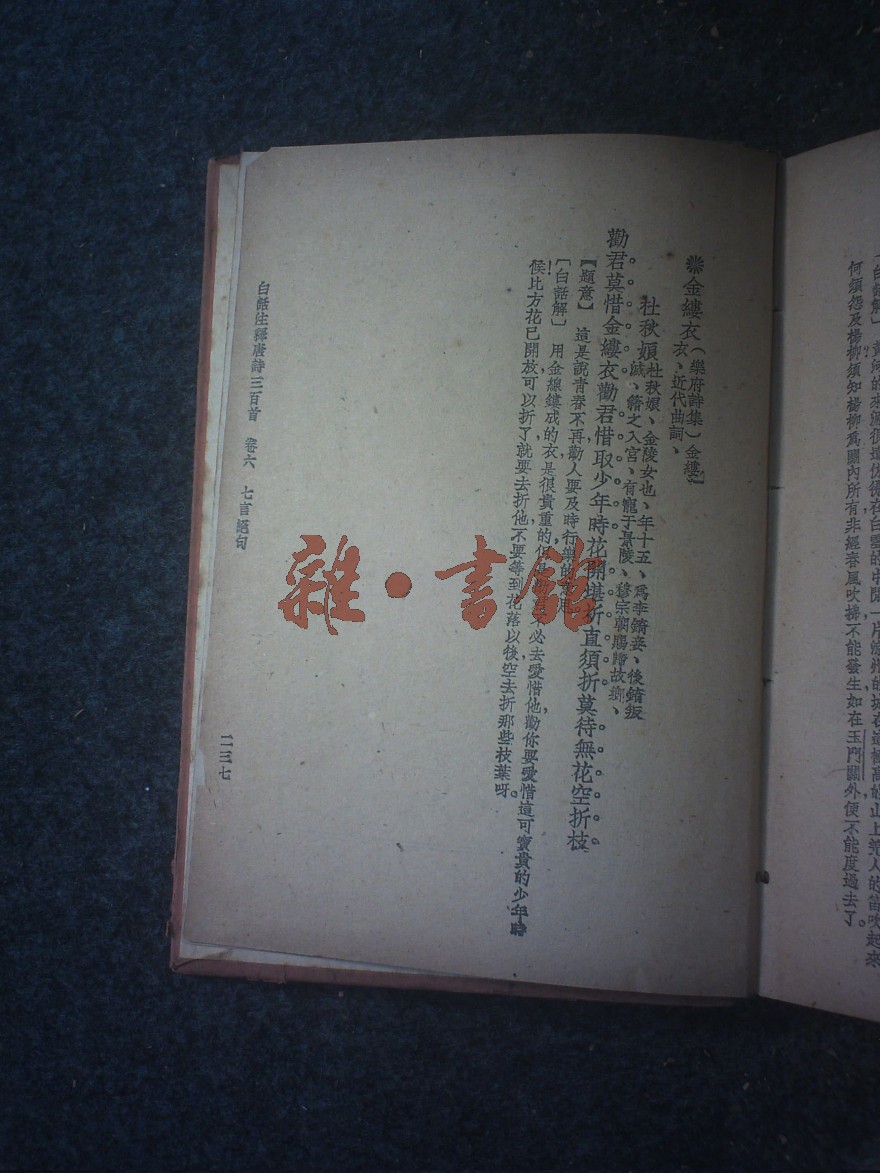 〔白話解〕黃河的來源很遠彷彿在白雲的中間一片涼州的城在這極高的山上羌人的笛吹起來
何須怨及楊柳須知楊柳爲關內所有非經春風吹拂不能發生如在玉門關外便不能度過去了。
❋金縷衣（樂府詩集）金縷
衣、近代曲詞、
杜秋娘
杜秋娘、金陵女也、年十五、爲李錡妾、後錡叛
滅、籍之入宮、有寵于景陵、穆宗朝賜歸故鄉、
勸君莫惜金縷衣勸君惜取少年時花開堪折直須折莫待無花空折枝
【題意】 這是說青春不再勸人要及時行樂的意思
〔白話解〕 用金線縷成的衣是很貴重的但是勸你不必去愛惜他勸你要愛惜這可寶貴的少年時
候比方花已開放可以折了就要去折他不要等到花落以後空去折那些枝葉呀。
白話注釋唐詩三百首 卷六 七言絕句
二三七
雜·書館